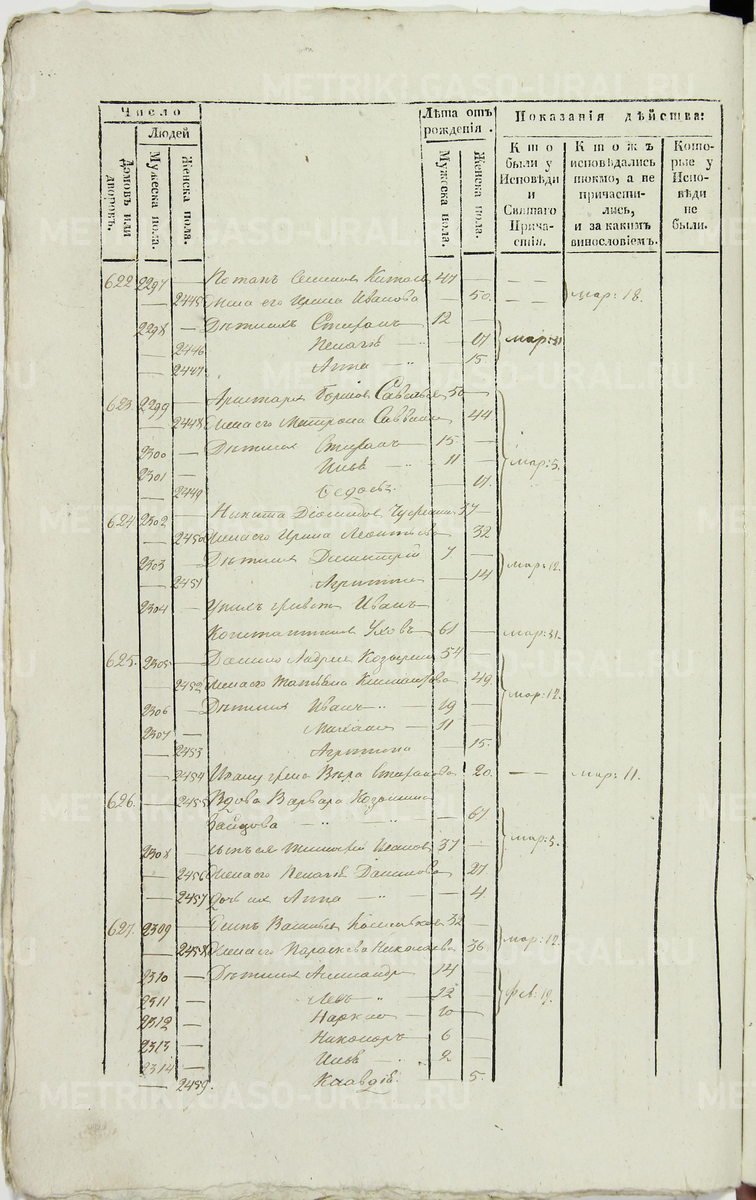 Число
Людей
Домовъ или дворовъ.
Мужеска пола.
Женска пола.
Лѣта отъ рожденія.
Мужеска пола.
Женска пола.
Показанія дѣйства:
Кто были у Исповѣди и Святаго Причастія.
Ктожъ исповѣдались токмо, а не причастились, и за какимъ винословіемъ.
Которые у Исповѣди не были.
622 2297 — Потапъ 47 —
— 2445 Жена его Ирина Иванова — 50. — — Мар: 18.
2298 — Дѣти ихъ Стефанъ 12 —
— 2446 Пелагѣя — 17 Мар: 31
— 2447 Анна — 15
623 2299 — Аристархъ 50 —
— 2448 Жена его Матрона Саввина — 44
2300 — Дѣти ихъ Стефанъ 15 —
2301 — Илья 11 — Мар: 5.
— 2449 Ѳедосья — 17.
624 2302 — Никита Діомидовъ 37 —
— 2450 Жена его Ирина Леонтьева — 32
2303 — Дѣти ихъ Димитрій 7 — Мар: 12.
— 2451 Агриппина — 14
2304 — У нихъ Иванъ
Константиновъ 61 — Мар: 31.
625. 2305 — Данило Андреевъ Козыринъ 54 —
— 2452 Жена его Татьяна — 49. Мар: 12.
2306 — Дѣти ихъ Иванъ 19 —
2307 — Михаилъ 11 —
— 2453 Агриппина — 15.
— 2454 Ивану жена Вѣра Стефанова — 20. — — Мар: 11.
626. — 2455 Вдова Варвара Козьмина
Зайцова — 67
2308 — сынъ ея 37 — Мар: 5.
— 2456 Жена его Пелагѣя Данилова — 27
— 2457 дочь ихъ Анна — 4.
627. 2309 — Осипъ Васильевъ 32 —
— 2458 Жена его Параскева Николаева — 36 Мар: 12.
2310 — Дѣти ихъ Александръ 14 —
2311 — Левъ 12 — Фев: 19.
2312 — Наркисъ 10 —
2313 — Никоноръ 6 —
2314 — Илья 2 —
— 2459. Клавдія. — 5.
METRIKI.GASO-URAL.RU